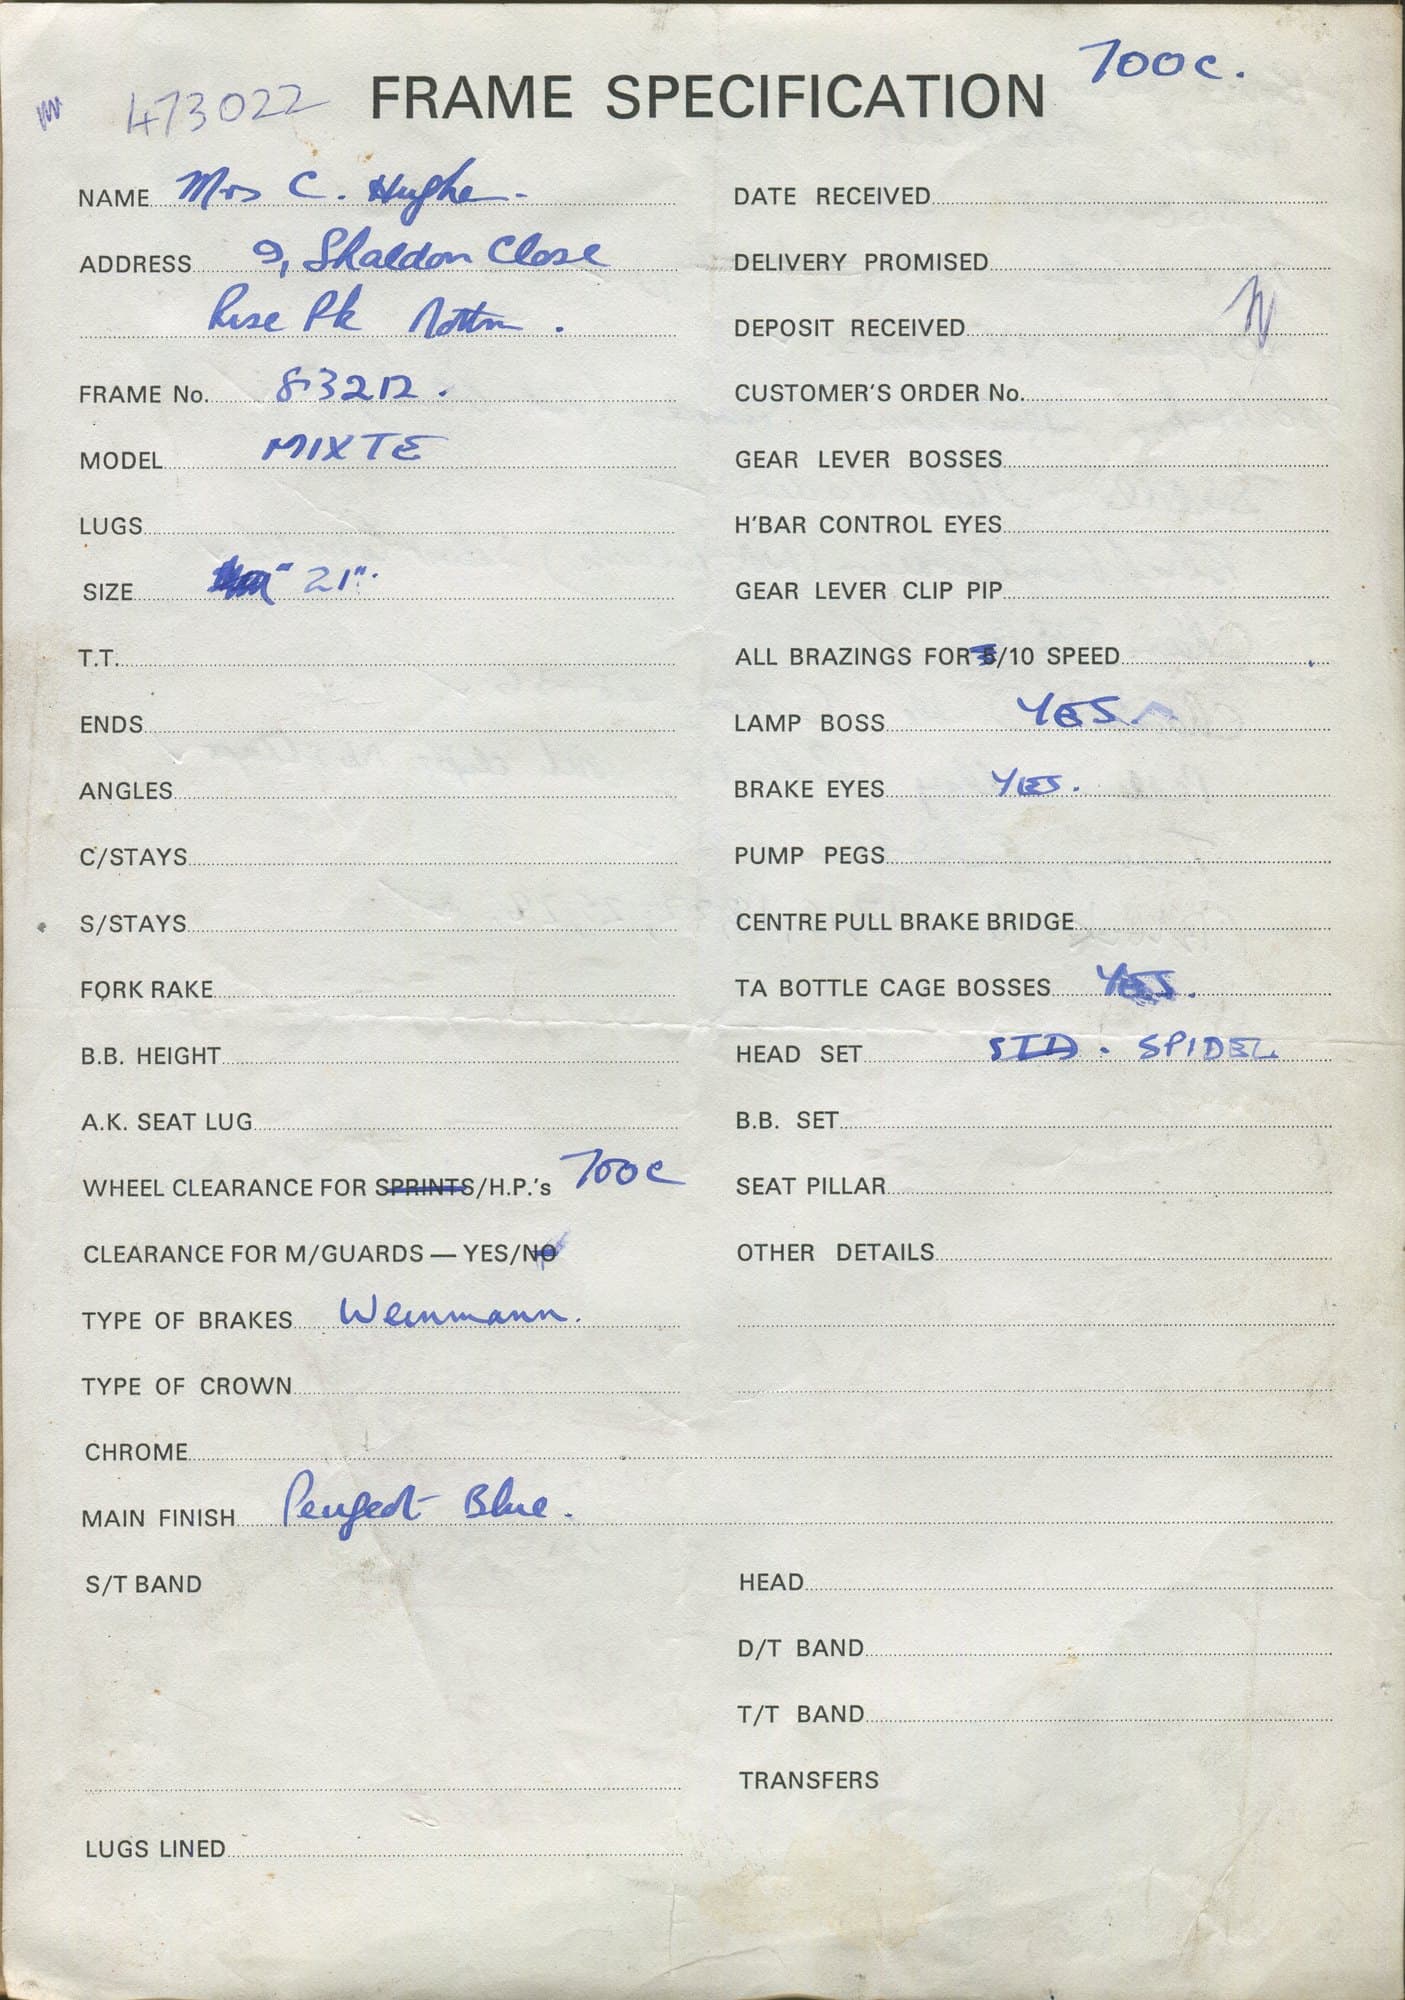 700c.
473022
FRAME SPECIFICATION
NAME Mrs C. Hughe
ADDRESS 9, Shaldon Close
Rise Pk Nottm.
FRAME No. 83212.
MODEL MIXTE
LUGS
SIZE 21".
T.T.
ENDS
ANGLES
C/STAYS
S/STAYS
FORK RAKE
B.B. HEIGHT
A.K. SEAT LUG
WHEEL CLEARANCE FOR SPRINTS/H.P.'s 700c
CLEARANCE FOR M/GUARDS — YES/NO
TYPE OF BRAKES Weinmann.
TYPE OF CROWN
CHROME
MAIN FINISH Peugeot Blue.
S/T BAND
LUGS LINED
DATE RECEIVED
DELIVERY PROMISED
DEPOSIT RECEIVED
CUSTOMER'S ORDER No.
GEAR LEVER BOSSES
H'BAR CONTROL EYES
GEAR LEVER CLIP PIP
ALL BRAZINGS FOR 5/10 SPEED
LAMP BOSS YES.
BRAKE EYES YES.
PUMP PEGS
CENTRE PULL BRAKE BRIDGE
TA BOTTLE CAGE BOSSES YES.
HEAD SET STD. SPIDEL
B.B. SET
SEAT PILLAR
OTHER DETAILS
HEAD
D/T BAND
T/T BAND
TRANSFERS